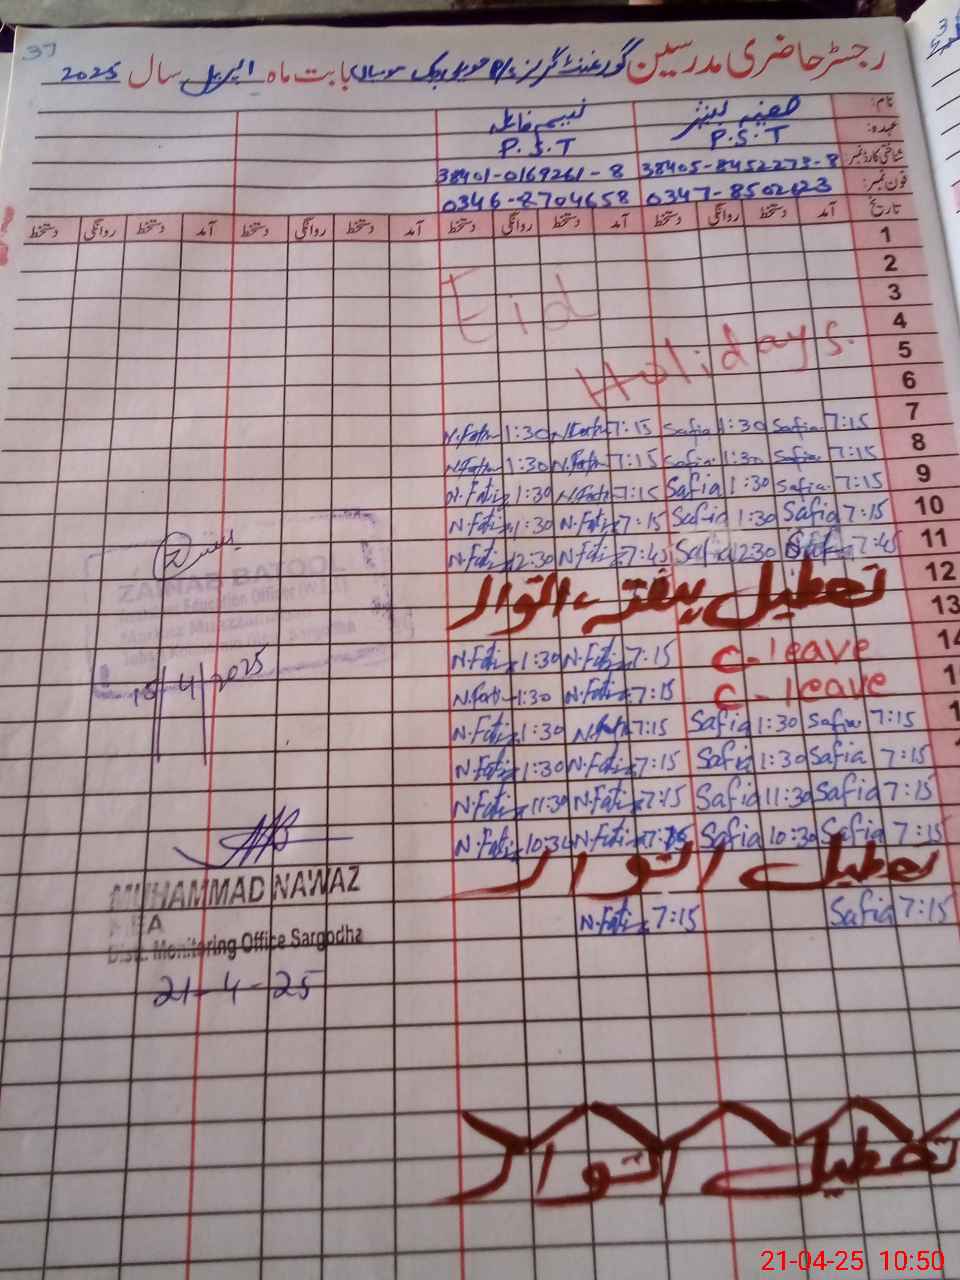 37
رجسٹر حاضری مدرسین گورنمنٹ گرلز بابت ماہ اپریل سال 2025
نام:
عہدہ: P.S.T P.S.T
شناختی کارڈ نمبر 38405-8452273-8 38401-0169261-8
فون نمبر: 0346-8704658
تاریخ آمد دستخط روانگی دستخط آمد دستخط روانگی دستخط آمد دستخط روانگی دستخط آمد دستخط روانگی دستخط
1
2
3
4
5
6
Eid
Holidays.
N.Fati 1:30 N.Fati 7:15 Safia 1:30 Safia 7:15 7
N.Fati 1:30 N.Fati 7:15 Safia 1:30 Safia 7:15 8
N.Fati 1:30 N.Fati 7:15 Safia 1:30 Safia 7:15 9
N.Fati 1:30 N.Fati 7:15 Safia 1:30 Safia 7:15 10
N.Fati 12:30 N.Fati 7:45 Safia 12:30 Safia 7:45 11
12
تعطیل ہفتہ، اتوار
13
N.Fati 1:30 N.Fati 7:15 C-leave 14
N.Fati 1:30 N.Fati 7:15 C-leave
N.Fati 1:30 N.Fati 7:15 Safia 1:30 Safia 7:15
N.Fati 1:30 N.Fati 7:15 Safia 1:30 Safia 7:15
N.Fati 11:30 N.Fati 7:15 Safia 11:30 Safia 7:15
N.Fati 10:30 N.Fati 7:15 Safia 10:30 Safia 7:15
تعطیل اتوار
N.Fati 7:15 Safia 7:15
تعطیل اتوار
ZAINAB BATOOL
Education Officer
Sargodha
10/4/2025
MUHAMMAD NAWAZ
MEA
Distt. Monitoring Office Sargodha
21-4-25
21-04-25 10:50